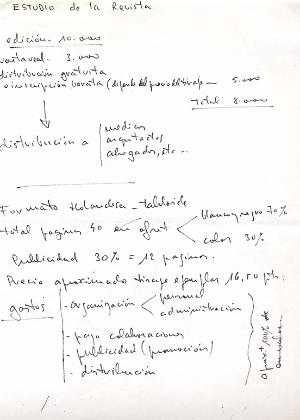 ESTUDIO de la Revista
edición - 10.000
3.000
distribución gratuita
o inscripción barata (depende del precio del tiraje — 5.000
Total 8.000
distribución a
medicos
arquitectos
abogados, etc...
Formato Holandesa - tabloide
total paginas 40 en ofset
blanco y negro 70%
color 30%
Publicidad 30% = 12 paginas.
Precio aproximado tiraje ejemplar 16,50 pts.
gastos
- organización
personal
administración
- pago colaboraciones
- publicidad (promoción)
- distribución
100% de